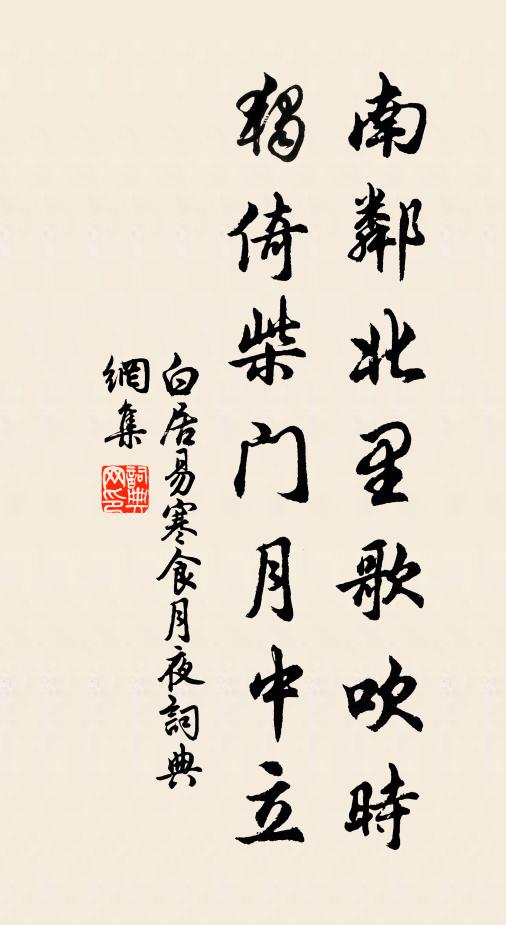 南鄰北里歌吹時
獨倚柴門月中立
白居易寒食月夜詞典
網集
詞典
网印